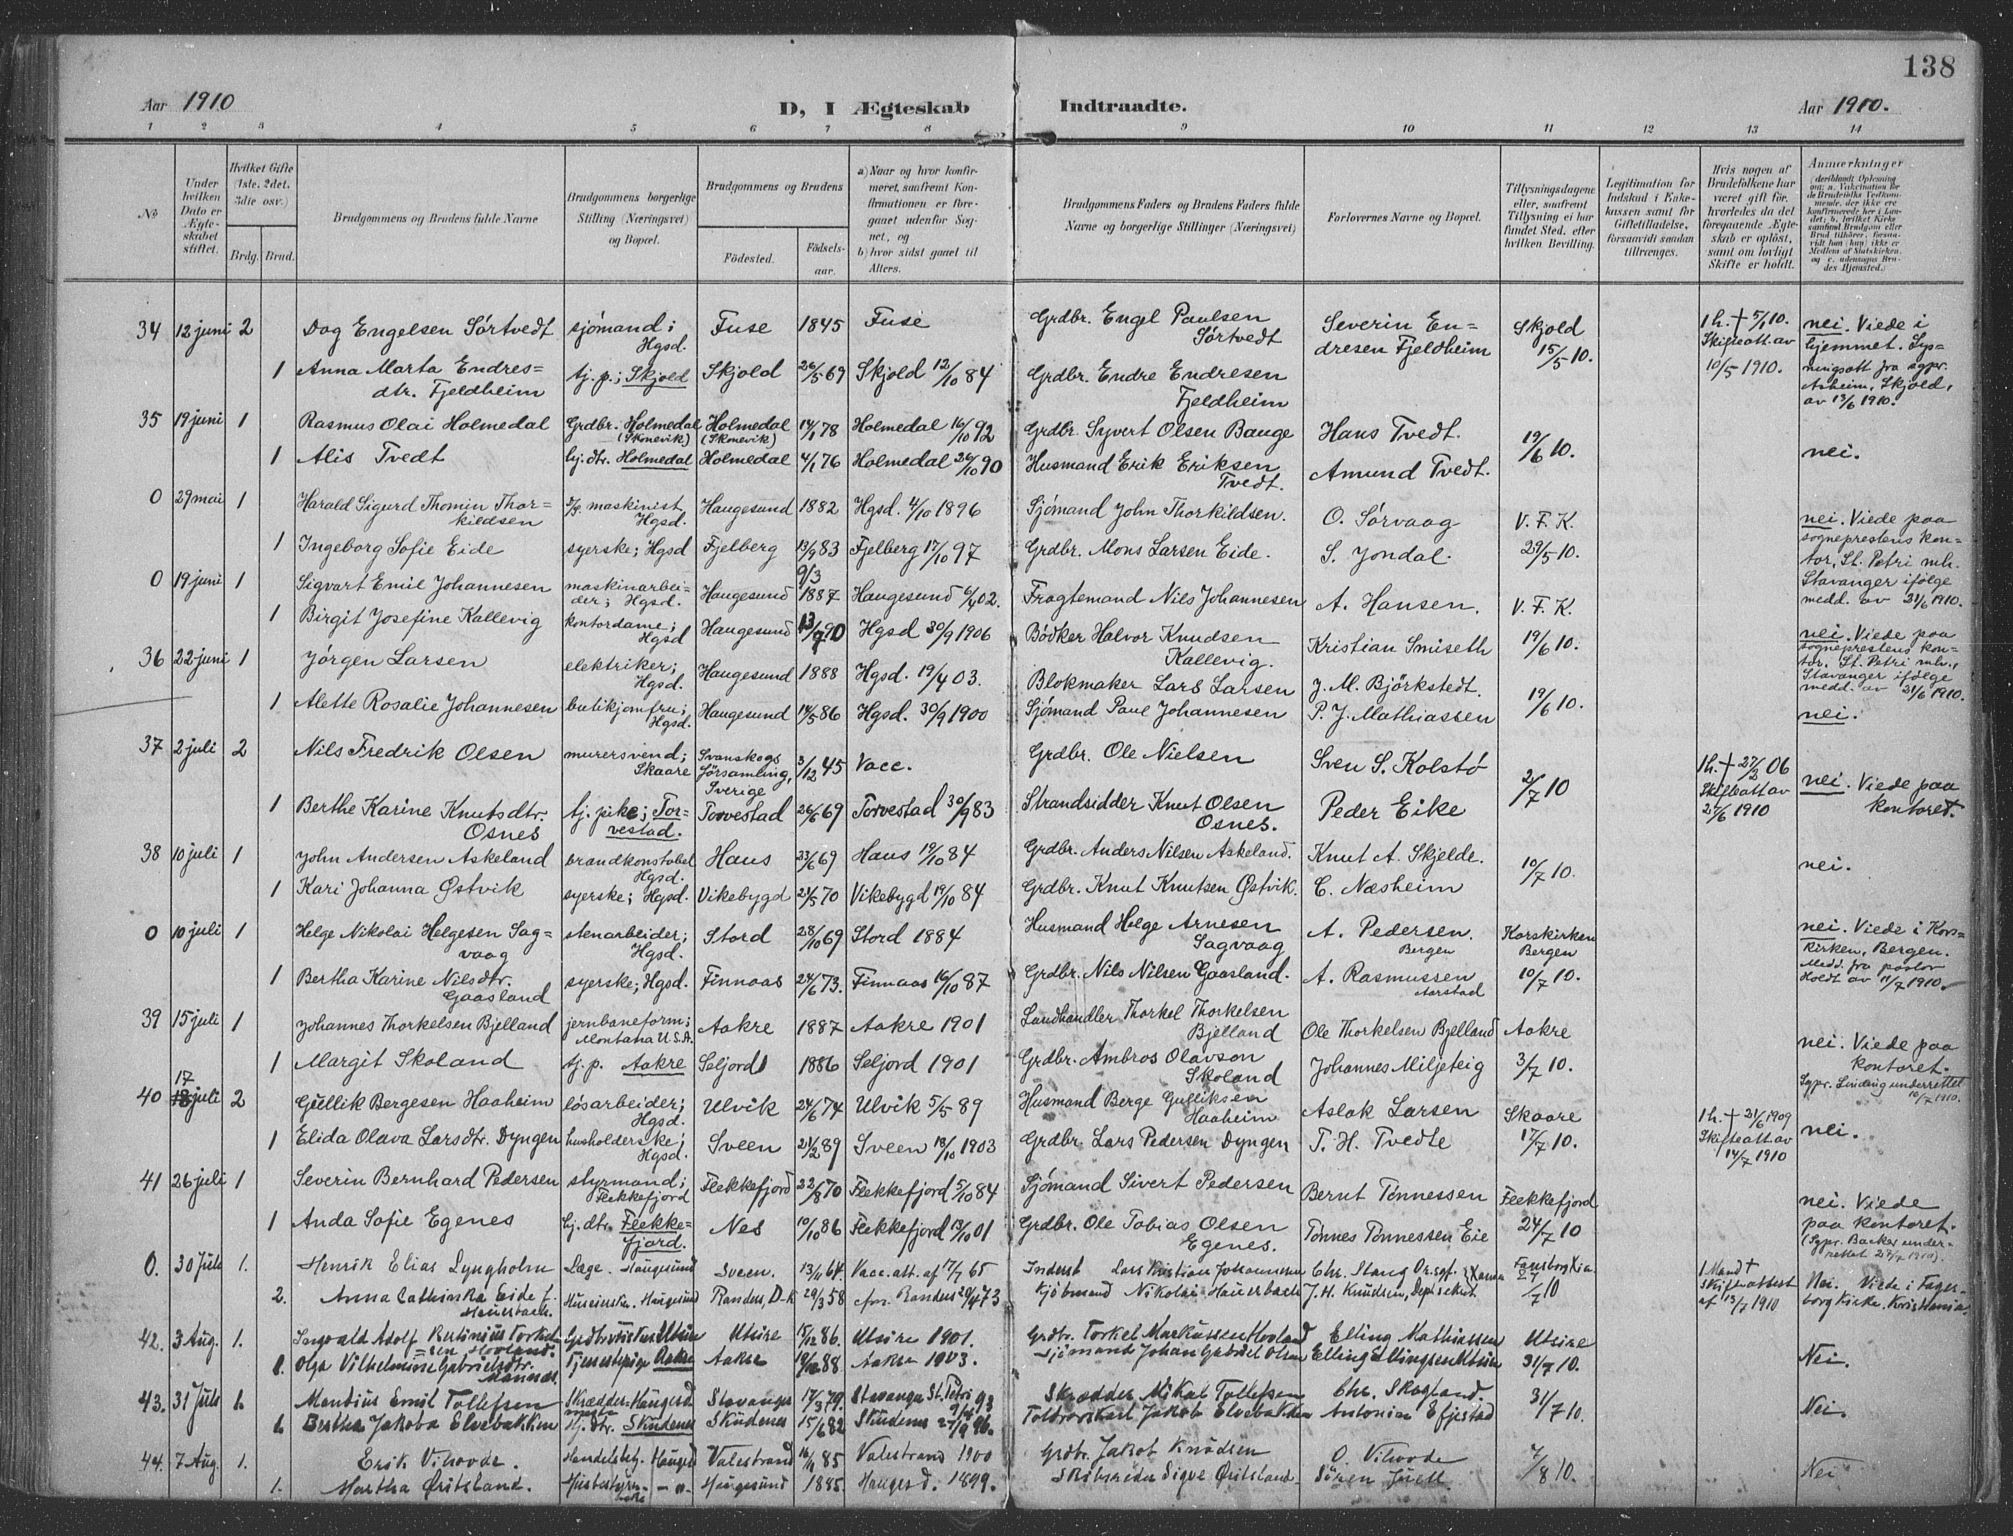 138
Aar 1910
D, I Ægteskab Indtraadte.
Aar 1910.
1 2 3 4 5 6 7 8 9 10 11 12 13 14
No
Under hvilken Dato er Ægteskabet stiftet.
Hvilket Gifte (1ste. 2det. 3die osv.)
Brdg. Brud.
Brudgommens og Brudens fulde Navne
Brudgommens borgerlige Stilling (Næringsvei) og Bopæl.
Brudgommens og Brudens
Födested.
Födsels-aar.
a) Naar og hvor konfirmeret, saafremt Konfirmationen er foregaaet udenfor Sognet, og
b) hvor sidst gaaet til Alters.
Brudgommens Faders og Brudens Faders fulde Navne og borgerlige Stillinger (Næringsvei)
Forlovernes Navne og Bopæl.
Tillysningsdagene eller, saafremt Tillysning ei har fundet Sted, efter hvilken Bevilling.
Legitimation for Indskud i Enkekassen samt for Giftetilladelse, forsaavidt saadan tiltrænges.
Hvis nogen af Brudefolkene har været gift før, hvorledes da det foregaaende Ægteskab er opløst, samt om lovligt Skifte er holdt.
Anmærkninger
34 12 juni 2 Dog Engelsen Sørtvedt sjømand; Hgsd. Fuse 1845 Fuse Grdbr. Engel Paulsen Sørtvedt Severin Endresen Fjeldheim Skjold 15/5 10. 1 h. + 5/1 10. Skifteatt. av 10/5 1910. nei. Viede i hjemmet. Lysningsatt fra sgpr. Asheim, Skjold, av 13/6 1910.
1 Anna Marta Endresdtr. Fjeldheim tj. p.; Skjold Skjold 26/5 69 Skjold 12/10 84 Grdbr. Endre Endresen Fjeldheim
35 19 juni 1 Rasmus Olai Holmedal Grdbr. Holmedal (Skonevik) Holmedal (Skonevik) 14/1 78 Holmedal 16/10 92 Grdbr. Syvert Olsen Bauge Hans Tvedt. 19/6 10. nei.
1 Alis Tvedt hj. dtr. Holmedal Holmedal 4/1 76 Holmedal 26/10 90 Husmand Erik Eriksen Tvedt. Amund Tvedt.
0 29 mai 1 Harald Sigurd Thomin Thorkildsen maskinist Hgsd. Haugesund 1882 Hgsd. 4/10 1896 Sjømand John Thorkildsen. O. Sørvaag V. F. K. nei. Viede paa sogneprestens kontor, St. Petri mh. Stavanger ifølge medd. av 21/6 1910.
1 Ingeborg Sofie Eide syerske; Hgsd Fjelberg 13/9 83 Fjelberg 17/10 97 Grdbr. Mons Larsen Eide. S. Jondal. 29/5 10.
0 19 juni 1 Sigvart Emil Johannesen maskinarbeider; Hgsd. Haugesund 9/3 1887 Haugesund 6/4 02. Fragtemand Nils Johannesen A. Hansen. V. F. K. nei. Viede paa sogneprestens kontor. St. Petri mh., Stavanger ifølge medd. av 21/6 1910.
1 Birgit Josefine Kallevig kontordame; Hgsd Haugesund 13/7 90 Hgsd 30/9 1906 Bødker Halvor Knudsen Kallevig. Kristian Smiseth 19/6 10.
36 22 juni 1 Jørgen Larsen elektriker; Hgsd. Haugesund 1888 Hgsd. 19/4 03. Blokmaker Lars Larsen J. M. Björkstedt. 19/6 10. nei.
1 Alette Rosalie Johannesen butikjomfru; Hgsd. Haugesund 14/5 86 Hgsd. 30/9 1900 Sjømand Paul Johannesen P. J. Mathiassen
37 2 juli 2 Nils Fredrik Olsen murersvend; Skaare Svanskogs församling, Sverige 3/12 45 Vacc. Grdbr. Ole Nielsen Sven S. Kolstø 2/7 10 1 h. + 27/2 06 Skifteatt av 21/6 1910 nei. Viede paa kontoret.
1 Berthe Karine Knutsdtr. Osnes tj. pike; Torvestad. Torvestad 26/6 69 Torvestad 30/9 83 Strandsidder Knut Olsen Osnes. Peder Eike
38 10 juli 1 John Andersen Askeland brandkonstabel Hgsd. Haus 23/6 69 Haus 19/10 84 Grdbr. Anders Nilsen Askeland. Knut A. Skjelde. 10/7 10. nei.
1 Kari Johanna Østvik syerske; Hgsd. Vikebygd 21/5 70 Vikebygd 19/10 84 Grdbr. Knut Knutsen Østvik. C. Næsheim
0 10 juli 1 Helge Nikolai Helgesen Sagvaag stenarbeider; Hgsd. Stord 28/10 69 Stord 1884 Husmand Helge Arnesen Sagvaag A. Pedersen. Bergen Korskirken Bergen nei. Viede i Korskirken, Bergen. Medd. fra pastor Holdt av 11/7 1910.
1 Bertha Karine Nilsdtr. Gaasland syerske; Hgsd. Finnaas 24/6 73. Finnaas 16/10 87 Grdbr. Nils Nilsen Gaasland. A. Rasmussen Aarstad 10/7 10.
39 15 juli 1 Johannes Thorkelsen Bjelland jernbaneform; Montana U.S.A. Aakre 1887 Aakre 1901 Landhandler Thorkel Thorkelsen Bjelland Ole Thorkelsen Bjelland Aakre nei. Viede paa kontoret. Sgpr. Linding underrettet 16/7 1910.
1 Margit Skoland tj. p. Aakre Seljord 1886 Seljord 1901 Grdbr. Ambros Olavson Skoland Johannes Miljeteig 3/7 10.
40 17 juli 2 Gullik Bergesen Haaheim løsarbeider; Hgsd. Ulvik 24/6 74 Ulvik 5/5 89 Husmand Berge Gulliksen Haaheim Aslak Larsen Skaare 1 h. + 21/6 1909 Skifteatt. av 14/7 1910 nei.
1 Elida Olava Larsdtr. Dyngen husholderske; Hgsd. Sveen 21/2 89 Sveen 18/10 1903 Grdbr. Lars Pedersen Dyngen T. H. Tvedte 17/7 10.
41 26 juli 1 Severin Bernhard Pedersen styrmand; Flekkefjord Flekkefjord 22/8 70 Flekkefjord 5/10 84 Sjømand Sivert Pedersen Bernt Tønnessen Flekkefjord nei. Viede paa kontoret. (Sgpr. Backer underrettet 27/7 1910).
1 Anda Sofie Egenes hj. dtr. Flekkefjord. Nes 10/10 86 Flekkefjord 13/10 01 Grdbr. Ole Tobias Olsen Egenes. Tønnes Tønnessen Eie 24/7 10
0. 30 Juli 1. Henrik Elias Lyngholm Læge. Haugesund Sveen. 13/11 64. Vacc. att. af 17/7 65 Inderst Lars Kristian Johannesen Chr. Stang 1 Mand + Skifteattest af 13/7 1910 Nei. Viede i Fagerborg Kirke, Kristiania.
2. Anna Cathinka Eide f. Hauerbach. Haugesund Randers, D-k 29/3 58 Randers 20/4 73 Kjøbmand Nikolai Hauerbach J. H. Knudsen, 10
42. 3 Aug. 1. Ingvald Adolf Bertinius Torkelsen Hovland. Utsire 15/12 86. Utsire 1901. Grdbr. Torkel Markussen Hovland Elling Mathiassen Utsire Nei.
1. Olga Vilhelmine Gabrielsdtr. Mannes. Tjenestepige Aakre Aakre 19/12 88 Aakre 1903. Sjømand Johan Gabriel Olsen Elling Ellingsen Utsire 31/7 10.
43. 31 Juli 1. Mandius Emil Tollefsen Skrædder Haugesd Stavanger 17/3 79. Stavanger St. Petri 9/4 93 Skrædder Mikal Tollefsen Chr. Skogland. 31/7 10. Nei.
1. Bertha Jakoba Elvebakken Hj. dtr. Skudenes Skudenes 15/6 82 Skudenes 27/9 96. Toldrorskarl Jakob Elvebakken Antonius Efjestad
44. 7 Aug. 1. Erik Vihovde. Handelsbetj. Haugesd Valestrand 16/1 85 Valestrand 1900 Grdbr. Jakob Knudsen O. Vihovde 7/8 10. Nei
1. Martha Øritsland. Haugesund 1885. Haugesd. 1899. Skibsreder Sigve Øritsland. Søren Juell